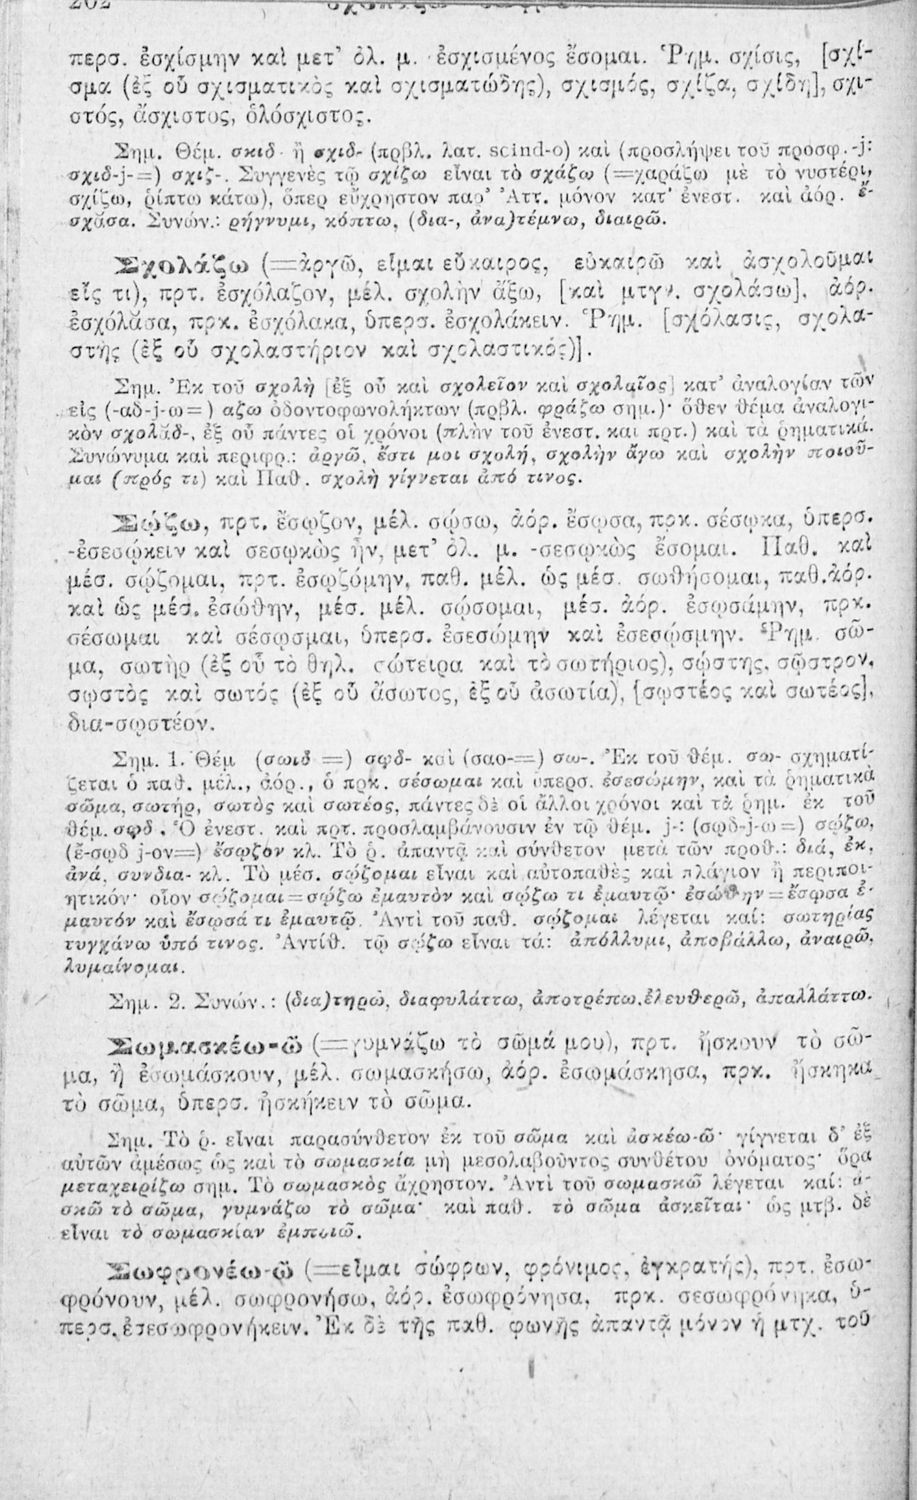 περσ. ἐσχίσμην καὶ μετ’ ὁλ. μ. ἐσχισμένος ἔσομαι. Ῥημ. σχίσις, [σχί-
σμα (ἐξ οὗ σχισματικὸς καὶ σχισματώδης), σχισμός, σχίζα, σχίδη], σχι-
στός, ἄσχιστος, ὁλόσχιστος.
Σημ. Θέμ. σκιδ- ἢ σχιδ- (πρβλ. λατ. scind-o) καὶ (προσλήψει τοῦ προσφ. -j:
σχιδ-j-=) σχιζ-. Συγγενὲς τῷ σχίζω εἶναι τὸ σχάζω (=χαράζω μὲ τὸ νυστέρι,
σχίζω, ῥίπτω κάτω), ὅπερ εὔχρηστον παρ’ Ἀττ. μόνον κατ’ ἐνεστ. καὶ ἀόρ. ἔ-
σχᾰσα. Συνών.: ῥήγνυμι, κόπτω, (δια-, ἀνα)τέμνω, διαιρῶ.
Σχολάζω (=ἀργῶ, εἶμαι εὔκαιρος, εὐκαιρῶ καὶ ἀσχολοῦμαι
εἴς τι), πρτ. ἐσχόλαζον, μέλ. σχολὴν ἄξω, [καὶ μτγν. σχολάσω], ἀόρ.
ἐσχόλᾰσα, πρκ. ἐσχόλακα, ὑπερσ. ἐσχολάκειν. Ῥημ. [σχόλασις, σχολα-
στὴς (ἐξ οὗ σχολαστήριον καὶ σχολαστικός)].
Σημ. Ἐκ τοῦ σχολὴ [ἐξ οὗ καὶ σχολεῖον καὶ σχολαῖος] κατ’ ἀναλογίαν τῶν
εἰς (-αδ-j-ω=) αζω ὀδοντοφωνολήκτων (πρβλ. φράζω σημ.)· ὅθεν θέμα ἀναλογι-
κὸν σχολᾰδ-, ἐξ οὗ πάντες οἱ χρόνοι (πλὴν τοῦ ἐνεστ. καὶ πρτ.) καὶ τὰ ῥηματικά.
Συνώνυμα καὶ περιφρ.: ἀργῶ, ἔστι μοι σχολή, σχολὴν ἄγω καὶ σχολὴν ποιοῦ-
μαι (πρός τι) καὶ Παθ. σχολὴ γίγνεται ἀπό τινος.
Σῴζω, πρτ. ἔσῳζον, μέλ. σώσω, ἀόρ. ἔσωσα, πρκ. σέσωκα, ὑπερσ.
-ἐσεσώκειν καὶ σεσωκὼς ἦν, μετ’ ὁλ. μ. -σεσωκὼς ἔσομαι. Παθ. καὶ
μέσ. σῴζομαι, πρτ. ἐσῳζόμην, παθ. μέλ. ὡς μέσ. σωθήσομαι, παθ. ἀόρ.
καὶ ὡς μέσ. ἐσώθην, μέσ. μέλ. σώσομαι, μέσ. ἀόρ. ἐσωσάμην, πρκ.
σέσωμαι καὶ σέσῳσμαι, ὑπερσ. ἐσεσώμην καὶ ἐσεσῴσμην. Ῥημ. σῶ-
μα, σωτὴρ (ἐξ οὗ τὸ θηλ. σώτειρα καὶ τὸ σωτήριος), σώστης, σῶστρον,
σωστὸς καὶ σωτός (ἐξ οὗ ἄσωτος, ἐξ οὗ ἀσωτία), [σωστέος καὶ σωτέος],
δια-σωστέον.
Σημ. 1. Θέμ (σωιδ =) σῳδ- καὶ (σαο-=) σω-. Ἐκ τοῦ θέμ. σω- σχηματί-
ζεται ὁ παθ. μέλ., ἀόρ., ὁ πρκ. σέσωμαι καὶ ὑπερσ. ἐσεσώμην, καὶ τὰ ῥηματικὰ
σῶμα, σωτήρ, σωτὸς καὶ σωτέος, πάντες δὲ οἱ ἄλλοι χρόνοι καὶ τὰ ῥημ. ἐκ τοῦ
θέμ. σῳδ. Ὁ ἐνεστ. καὶ πρτ. προσλαμβάνουσιν ἐν τῷ θέμ. j-: (σῳδ-j-ω=) σῴζω,
(ἔ-σῳδ j-ον=) ἔσῳζον κλ. Τὸ ῥ. ἀπαντᾷ καὶ σύνθετον μετὰ τῶν προθ.: διά, ἐκ,
ἀνά, συνδια- κλ. Τὸ μέσ. σῴζομαι εἶναι καὶ αὐτοπαθὲς καὶ πλάγιον ἢ περιποι-
ητικόν· οἷον σῴζομαι=σῴζω ἐμαυτὸν καὶ σῴζω τι ἐμαυτῷ· ἐσώθην=ἔσωσα ἐ-
μαυτόν καὶ ἔσωσά τι ἐμαυτῷ. Ἀντὶ τοῦ παθ. σῴζομαι λέγεται καί: σωτηρίας
τυγχάνω ὑπό τινος. Ἀντίθ. τῷ σῴζω εἶναι τά: ἀπόλλυμι, ἀποβάλλω, ἀναιρῶ,
λυμαίνομαι.
Σημ. 2. Συνών.: (δια)τηρῶ, διαφυλάττω, ἀποτρέπω, ἐλευθερῶ, ἀπαλλάττω.
Σωμασκέω-ῶ (=γυμνάζω τὸ σῶμά μου), πρτ. ἤσκουν τὸ σῶ-
μα, ἢ ἐσωμάσκουν, μέλ. σωμασκήσω, ἀόρ. ἐσωμάσκησα, πρκ. ἤσκηκα
τὸ σῶμα, ὑπερσ. ἠσκήκειν τὸ σῶμα.
Σημ. Τὸ ῥ. εἶναι παρασύνθετον ἐκ τοῦ σῶμα καὶ ἀσκέω-ῶ· γίγνεται δ’ ἐξ
αὐτῶν ἀμέσως ὡς καὶ τὸ σωμασκία μὴ μεσολαβοῦντος συνθέτου ὀνόματος· ὅρα
μεταχειρίζω σημ. Τὸ σωμασκὸς ἄχρηστον. Ἀντὶ τοῦ σωμασκῶ λέγεται καί: ἀ-
σκῶ τὸ σῶμα, γυμνάζω τὸ σῶμα· καὶ παθ. τὸ σῶμα ἀσκεῖται· ὡς μτβ. δὲ
εἶναι τὸ σωμασκίαν ἐμποιῶ.
Σωφρονέω-ῶ (=εἶμαι σώφρων, φρόνιμος, ἐγκρατής), πρτ. ἐσω-
φρόνουν, μέλ. σωφρονήσω, ἀόρ. ἐσωφρόνησα, πρκ. σεσωφρόνηκα, ὑ-
περσ. ἐσεσωφρονήκειν. Ἐκ δὲ τῆς παθ. φωνῆς ἀπαντᾷ μόνον ἡ μτχ. τοῦ